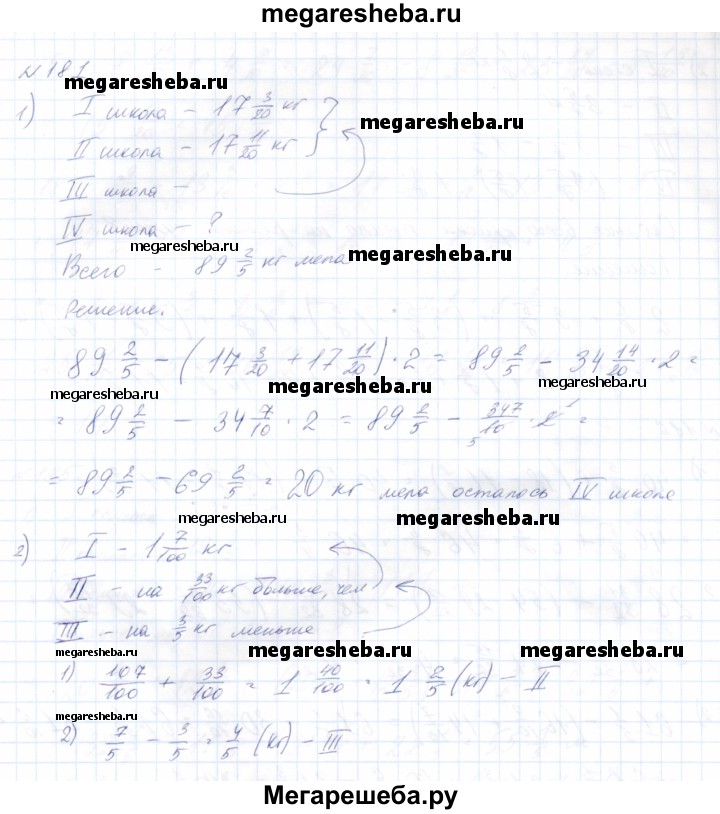 megaresheba.ru
N 181
megaresheba.ru
1) I школа - 17 3/20 кг
megaresheba.ru
II школа - 17 11/20 кг
III школа -
IV школа - ?
megaresheba.ru
Всего - 89 2/5 кг мела
megaresheba.ru
Решение.
89 2/5 - (17 3/20 + 17 11/20) · 2 = 89 2/5 - 34 14/20 · 2 =
megaresheba.ru megaresheba.ru megaresheba.ru
= 89 2/5 - 34 7/10 · 2 = 89 2/5 - 347/10 5 · 2 1 =
= 89 2/5 - 69 2/5 = 20 кг мела осталось IV школе
megaresheba.ru megaresheba.ru
2) I - 1 7/100 кг
II - на 33/100 кг больше, чем
III - на 3/5 кг меньше
megaresheba.ru megaresheba.ru megaresheba.ru
1) 107/100 + 33/100 = 1 40/100 = 1 2/5 (кг) - II
megaresheba.ru
2) 7/5 - 3/5 = 4/5 (кг) - III
Мегарешеба.ру